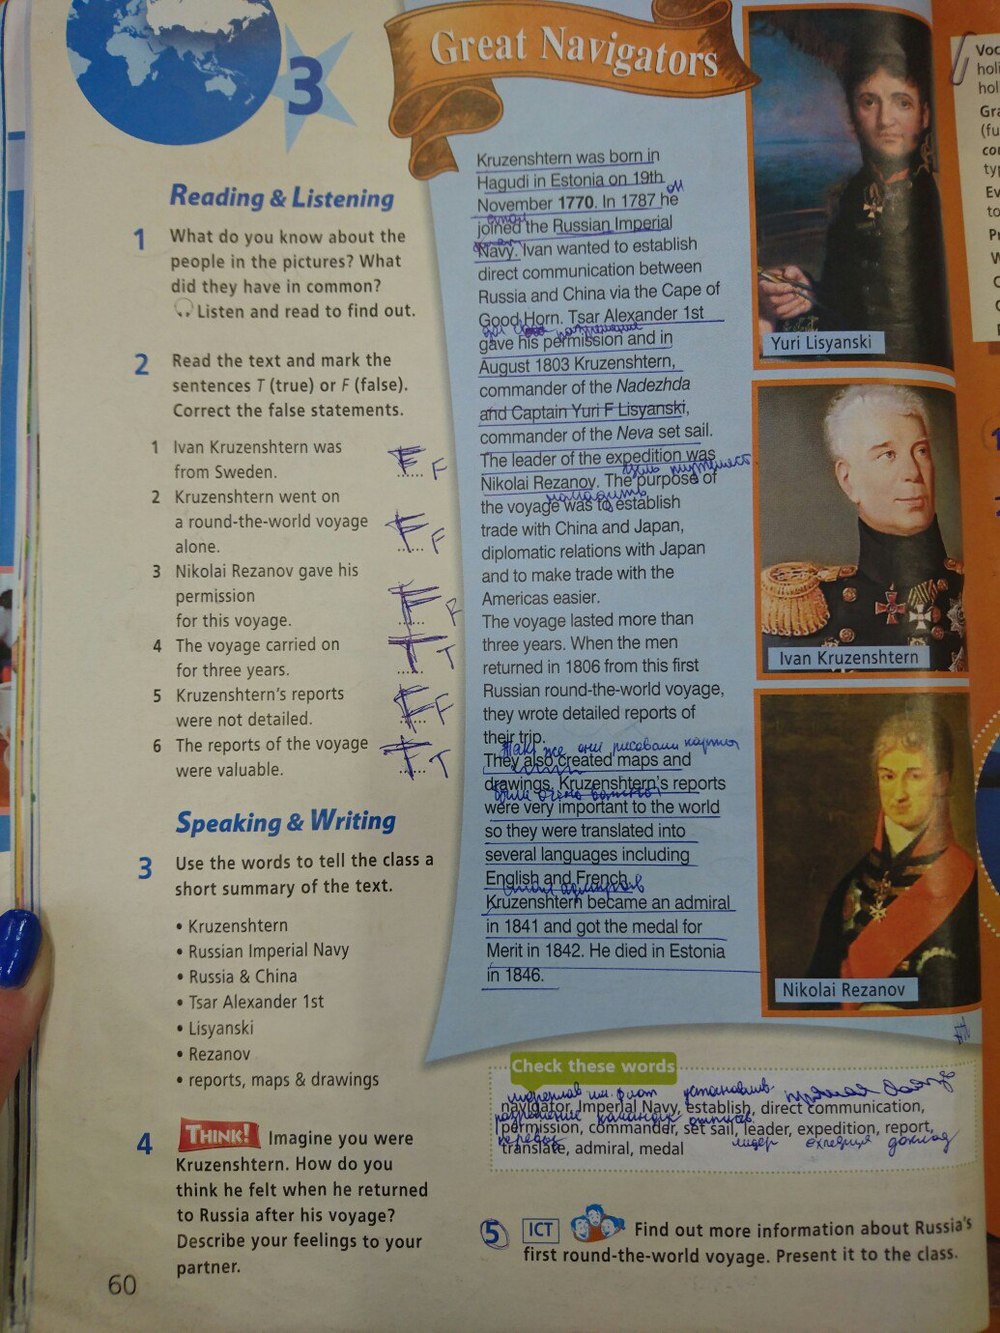 3
Great Navigators
Reading & Listening
1 What do you know about the
people in the pictures? What
did they have in common?
Listen and read to find out.
2 Read the text and mark the
sentences T (true) or F (false).
Correct the false statements.
1 Ivan Kruzenshtern was
from Sweden. ...... F
2 Kruzenshtern went on
a round-the-world voyage
alone. ...... F
3 Nikolai Rezanov gave his
permission
for this voyage. ...... F
4 The voyage carried on
for three years. ...... T
5 Kruzenshtern's reports
were not detailed. ...... F
6 The reports of the voyage
were valuable. ...... T
Speaking & Writing
3 Use the words to tell the class a
short summary of the text.
• Kruzenshtern
• Russian Imperial Navy
• Russia & China
• Tsar Alexander 1st
• Lisyanski
• Rezanov
• reports, maps & drawings
4 THINK! Imagine you were
Kruzenshtern. How do you
think he felt when he returned
to Russia after his voyage?
Describe your feelings to your
partner.
60
Kruzenshtern was born in
Hagudi in Estonia on 19th
November 1770. In 1787 he
joined the Russian Imperial
Navy. Ivan wanted to establish
direct communication between
Russia and China via the Cape of
Good Horn. Tsar Alexander 1st
gave his permission and in
August 1803 Kruzenshtern,
commander of the Nadezhda
and Captain Yuri F Lisyanski,
commander of the Neva set sail.
The leader of the expedition was
Nikolai Rezanov. The purpose of
the voyage was to establish
trade with China and Japan,
diplomatic relations with Japan
and to make trade with the
Americas easier.
The voyage lasted more than
three years. When the men
returned in 1806 from this first
Russian round-the-world voyage,
they wrote detailed reports of
their trip.
Так же они рисовали карты
They also created maps and
drawings. Kruzenshtern's reports
were very important to the world
so they were translated into
several languages including
English and French.
Kruzenshtern became an admiral
in 1841 and got the medal for
Merit in 1842. He died in Estonia
in 1846.
Yuri Lisyanski
Ivan Kruzenshtern
Nikolai Rezanov
Check these words
navigator, Imperial Navy, establish, direct communication,
permission, commander, set sail, leader, expedition, report,
лидер экспедиция доклад
translate, admiral, medal
5 ICT Find out more information about Russia's
first round-the-world voyage. Present it to the class.
Voc
holi
hol
Gra
(fu
co
typ
Ev
to
Pr
W